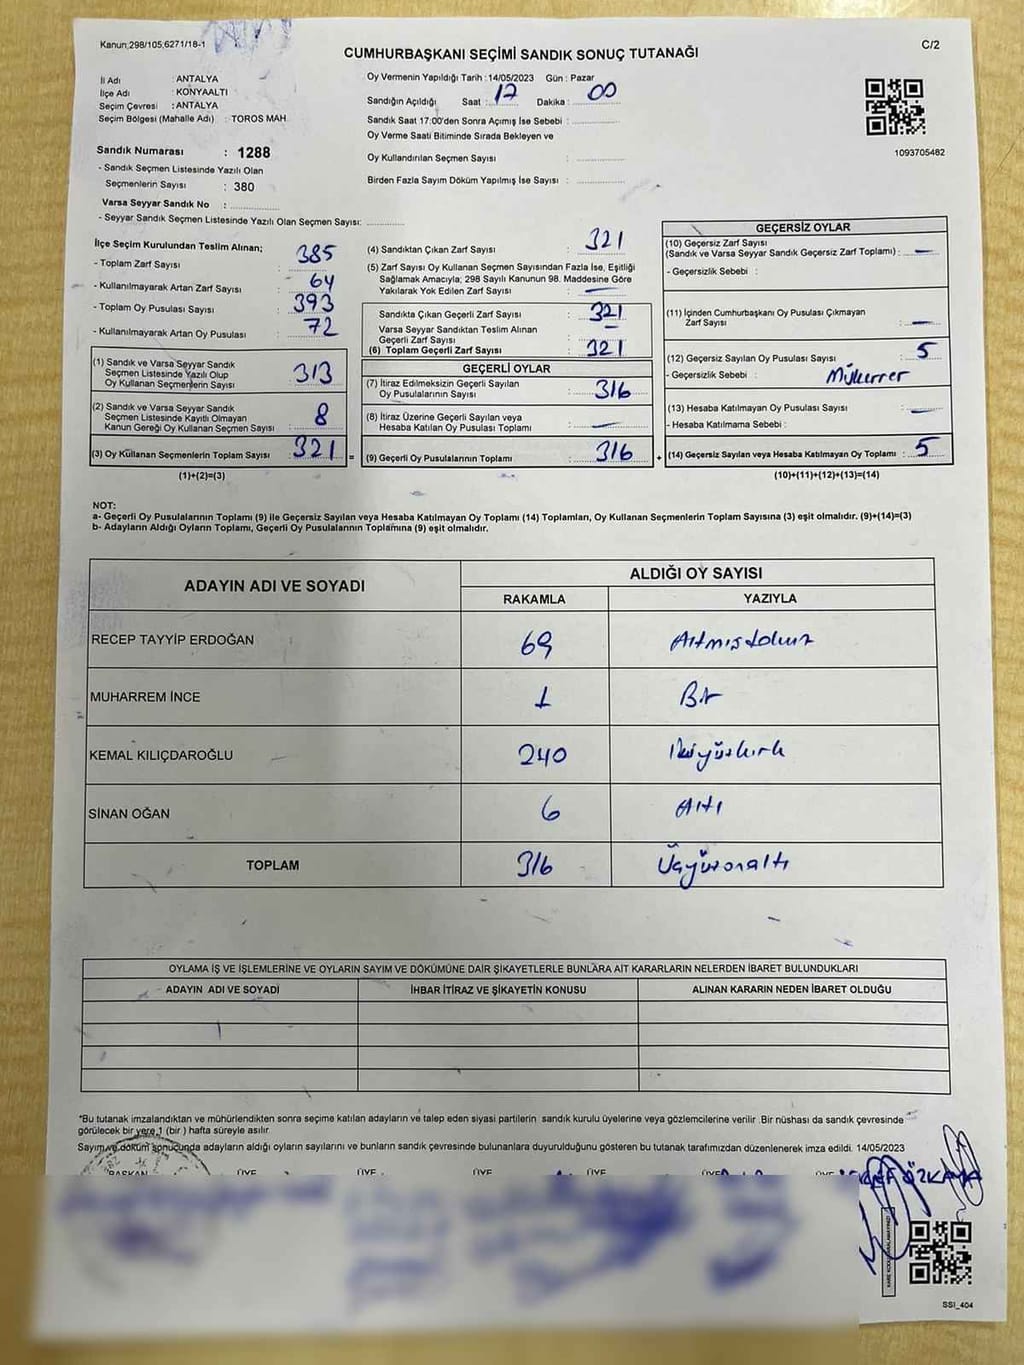 Kanun;298/105;6271/18-1
C/2
CUMHURBAŞKANI SEÇİMİ SANDIK SONUÇ TUTANAĞI
İl Adı : ANTALYA
İlçe Adı : KONYAALTI
Seçim Çevresi : ANTALYA
Seçim Bölgesi (Mahalle Adı) : TOROS MAH.
Sandık Numarası : 1288
- Sandık Seçmen Listesinde Yazılı Olan
Seçmenlerin Sayısı : 380
Varsa Seyyar Sandık No :
- Seyyar Sandık Seçmen Listesinde Yazılı Olan Seçmen Sayısı:
Oy Vermenin Yapıldığı Tarih : 14/05/2023 Gün : Pazar
Sandığın Açıldığı Saat : 17 Dakika : 00
Sandık Saat 17:00'den Sonra Açımış İse Sebebi :
Oy Verme Saati Bitiminde Sırada Bekleyen ve
Oy Kullandırılan Seçmen Sayısı :
Birden Fazla Sayım Döküm Yapılmış İse Sayısı :
1093705482
İlçe Seçim Kurulundan Teslim Alınan;
- Toplam Zarf Sayısı : 385
- Kullanılmayarak Artan Zarf Sayısı : 64
- Toplam Oy Pusulası Sayısı : 393
- Kullanılmayarak Artan Oy Pusulası : 72
(1) Sandık ve Varsa Seyyar Sandık
Seçmen Listesinde Yazılı Olup
Oy Kullanan Seçmenlerin Sayısı : 313
(2) Sandık ve Varsa Seyyar Sandık
Seçmen Listesinde Kayıtlı Olmayan
Kanun Gereği Oy Kullanan Seçmen Sayısı : 8
(3) Oy Kullanan Seçmenlerin Toplam Sayısı : 321 =
(1)+(2)=(3)
(4) Sandıktan Çıkan Zarf Sayısı : 321
(5) Zarf Sayısı Oy Kullanan Seçmen Sayısından Fazla İse, Eşitliği
Sağlamak Amacıyla; 298 Sayılı Kanunun 98. Maddesine Göre
Yakılarak Yok Edilen Zarf Sayısı : —
Sandıkta Çıkan Geçerli Zarf Sayısı : 321
Varsa Seyyar Sandıktan Teslim Alınan
Geçerli Zarf Sayısı : —
(6) Toplam Geçerli Zarf Sayısı : 321
GEÇERLİ OYLAR
(7) İtiraz Edilmeksizin Geçerli Sayılan
Oy Pusulalarının Sayısı : 316
(8) İtiraz Üzerine Geçerli Sayılan veya
Hesaba Katılan Oy Pusulası Toplamı : —
(9) Geçerli Oy Pusulalarının Toplamı : 316 +
GEÇERSİZ OYLAR
(10) Geçersiz Zarf Sayısı
(Sandık ve Varsa Seyyar Sandık Geçersiz Zarf Toplamı) : —
- Geçersizlik Sebebi :
(11) İçinden Cumhurbaşkanı Oy Pusulası Çıkmayan
Zarf Sayısı : —
(12) Geçersiz Sayılan Oy Pusulası Sayısı : 5
- Geçersizlik Sebebi : Mükerrer
(13) Hesaba Katılmayan Oy Pusulası Sayısı : —
- Hesaba Katılmama Sebebi :
(14) Geçersiz Sayılan veya Hesaba Katılmayan Oy Toplamı : 5
(10)+(11)+(12)+(13)=(14)
NOT:
a- Geçerli Oy Pusulalarının Toplamı (9) ile Geçersiz Sayılan veya Hesaba Katılmayan Oy Toplamı (14) Toplamları, Oy Kullanan Seçmenlerin Toplam Sayısına (3) eşit olmalıdır. (9)+(14)=(3)
b- Adayların Aldığı Oyların Toplamı, Geçerli Oy Pusulalarının Toplamına (9) eşit olmalıdır.
ADAYIN ADI VE SOYADI ALDIĞI OY SAYISI
RAKAMLA YAZIYLA
RECEP TAYYİP ERDOĞAN 69 Altmışdokuz
MUHARREM İNCE 1 Bir
KEMAL KILIÇDAROĞLU 240 İkiyüzkırk
SİNAN OĞAN 6 Altı
TOPLAM 316 Üçyüzonaltı
OYLAMA İŞ VE İŞLEMLERİNE VE OYLARIN SAYIM VE DÖKÜMÜNE DAİR ŞİKAYETLERLE BUNLARA AİT KARARLARIN NELERDEN İBARET BULUNDUKLARI
ADAYIN ADI VE SOYADI İHBAR İTİRAZ VE ŞİKAYETİN KONUSU ALINAN KARARIN NEDEN İBARET OLDUĞU
*Bu tutanak imzalandıktan ve mühürlendikten sonra seçime katılan adayların ve talep eden siyasi partilerin sandık kurulu üyelerine veya gözlemcilerine verilir. Bir nüshası da sandık çevresinde
görülecek bir yere 1 (bir) hafta süreyle asılır.
Sayım ve döküm sonucunda adayların aldığı oyların sayılarını ve bunların sandık çevresinde bulunanlara duyurulduğunu gösteren bu tutanak tarafımızdan düzenlenerek imza edildi. 14/05/2023
BAŞKAN ÜYE ÜYE ÜYE ÜYE ÜYE ÜYE
ÖZKAYA
SSI_404